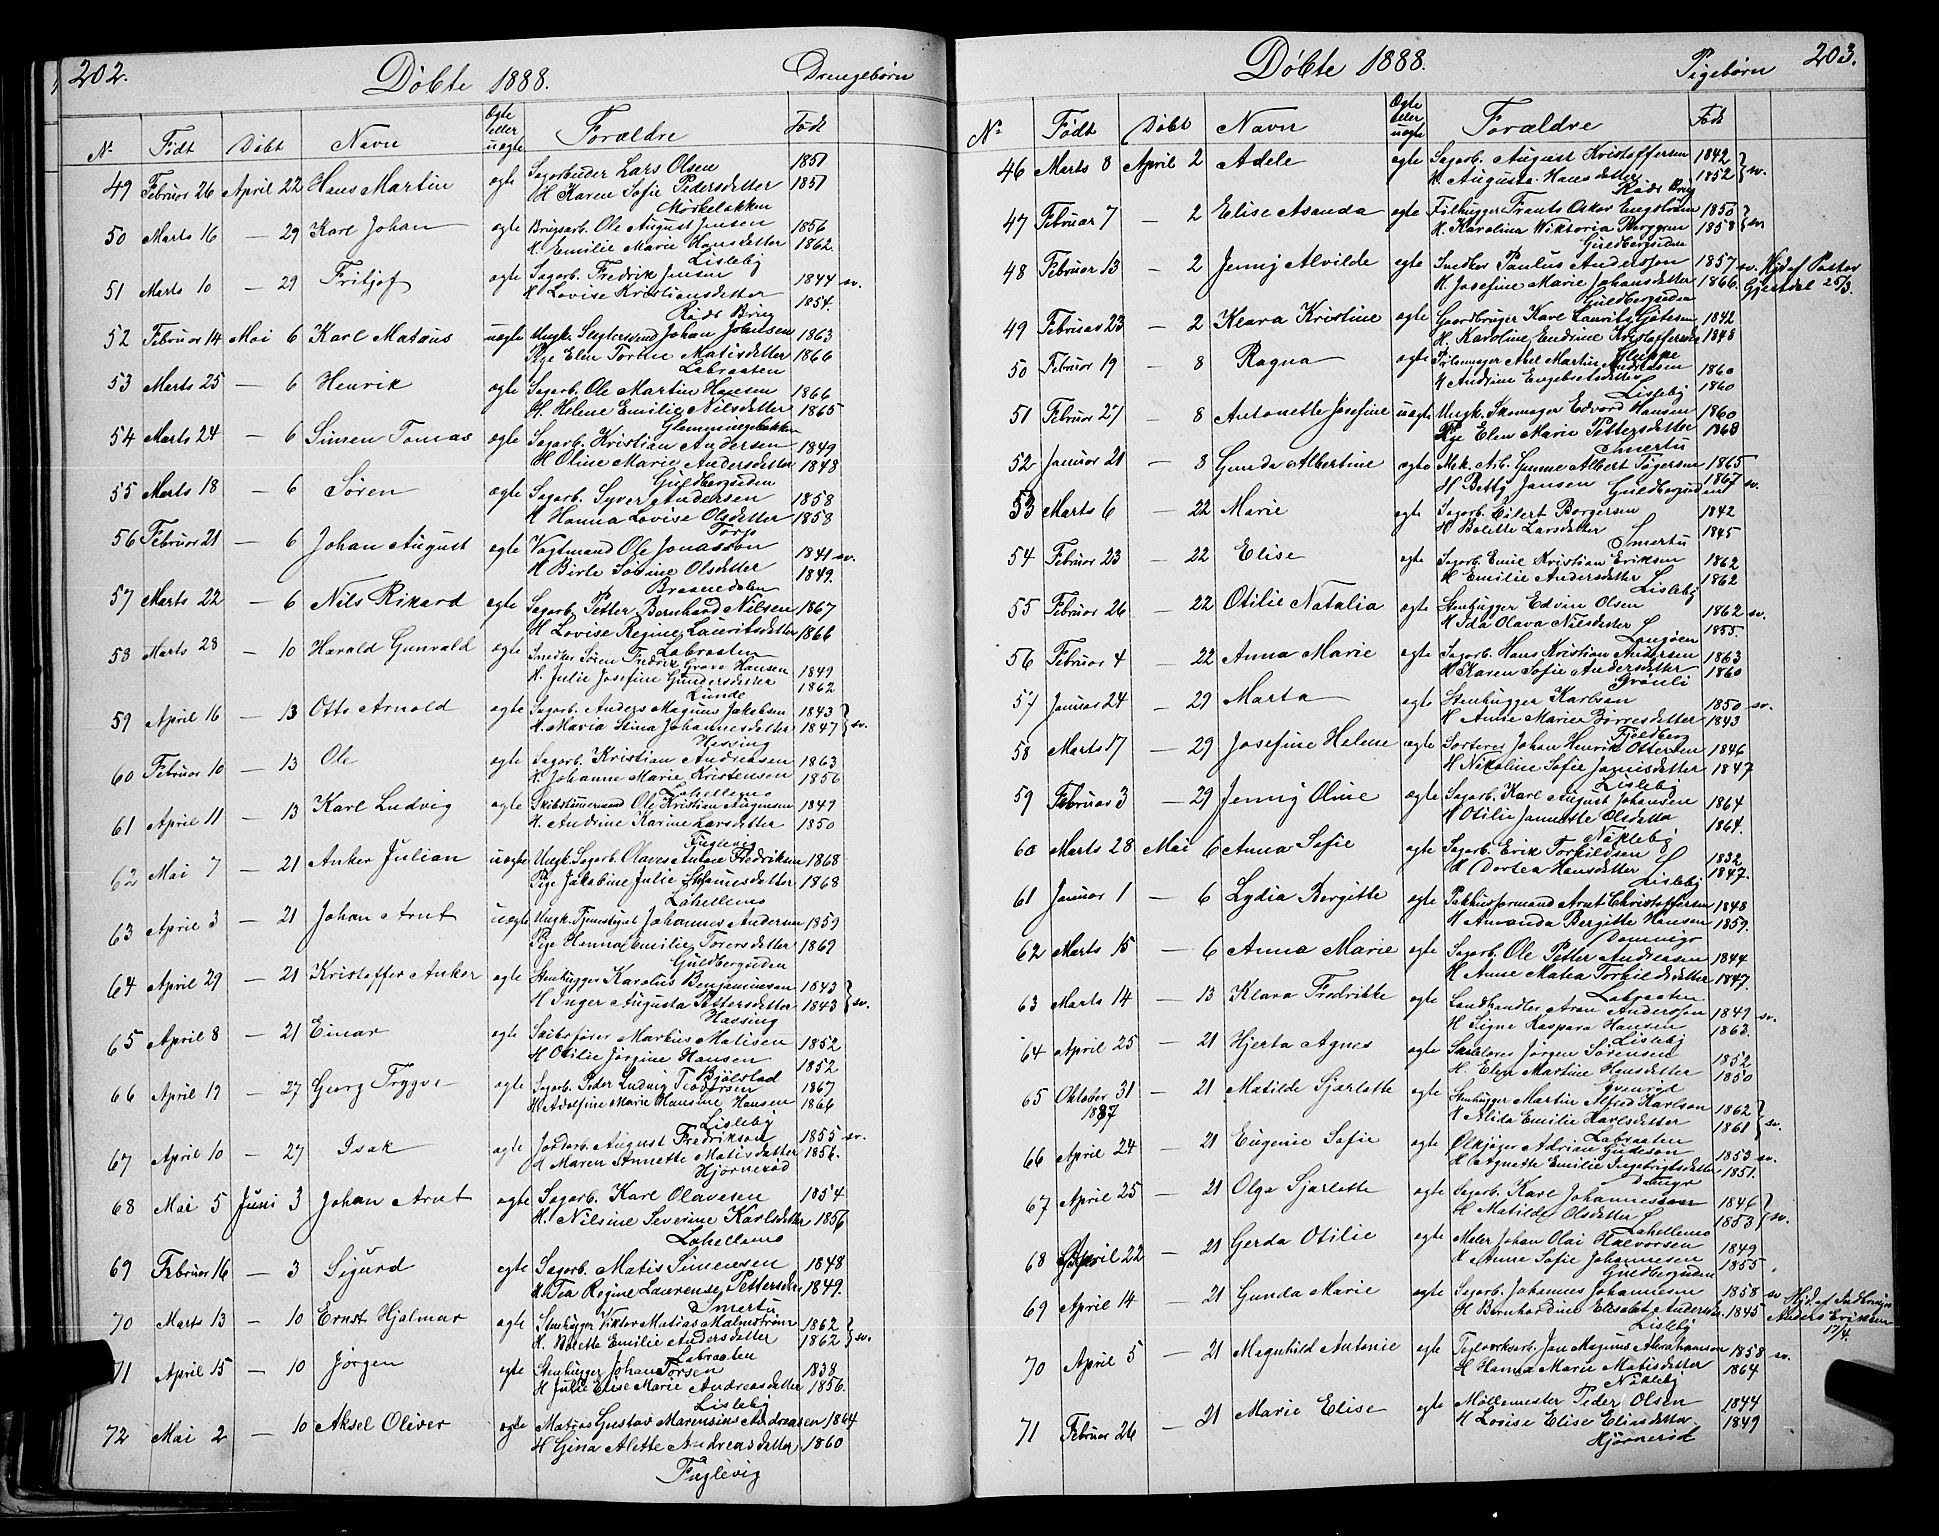 202.
Döbte 1888.
Drengebörn
Nr Födt Döbt Navn Ægte eller uægte Forældre Födt
49 Februar 26 April 22 Hans Martin ægte Sagarbuder Lars Olsen 1851
H Karen Sofie Pedersdatter 1851
Mörkelökken
50 Marts 16 — 29 Karl Johan ægte Brugsarb. Ole August Jensen 1856
H. Emilie Marie Hansdatter 1862.
Lisleby
51 Marts 10 — 29 Fritjof ægte Sagarb. Fredrik Jensen 1844 sv.
H Lovise Kristiansdatter 1854.
Röds Brug
52 Februar 14 Mai 6 Karl Mataus uægte Ungk. Johan Johansen 1863
Pige Elen Torine Matisdatter 1866
Labraaten
53 Marts 25 — 6 Henrik ægte Sagarb. Ole Martin Hansen 1866
H. Helene Emilie Nilsdatter 1865
Glemmingebakken
54 Marts 24 — 6 Simen Tomas ægte Sagarb. Kristian Andersen 1849
H Oline Marie Andersdatter 1848
Guldbergsuden
55 Marts 18 — 6 Sören ægte Sagarb. Syver Andersen 1858
H Hanna Lovise Olsdatter 1858
Torp
56 Februar 21 — 6 Johan August ægte Vagtmand Ole Jonasson 1841 sv.
H Birte Sörine Olsdatter 1849.
57 Marts 22 — 6 Nils Rikard ægte Sagarb. Petter Bernhard Nilsen 1867
H Lovise Regine Lauritsdatter 1866
Labraaten
58 Marts 28 — 10 Harald Gunvald ægte Snedker Sören Fredrik Grove Hansen 1849
H. Julie Josefine Gundersdatter 1862
Lunde
59 April 16 — 13 Otto Arnold ægte Sagarb. Anders Magnus Jakobsen 1843
H. Maria Stina Johannesdatter 1847 } sv.
Hessing
60 Februar 10 — 13 Ole ægte Sagarb. Kristian Andreasen 1863
H. Johanne Marie Kristensen 1856
Lahellemo
61 April 11 — 13 Karl Ludvig ægte Skibstömmermand Ole Kristian Augensen 1849
H. Andrine Karine Larsdatter 1850
Fuglevig
62 Mai 7 — 21 Anker Julian uægte Ungk. Sagarb. Olaves Antoni Fredriksen 1868
Pige Jakobine Julie Johannesdatter 1868
Lahellemo
63 April 3 — 21 Johan Arnt uægte Ungk. Johannes Andersen 1859
Pige Hanna Emilie Torersdatter 1869
Guldbergsuden
64 April 29 — 21 Kristoffer Anker ægte Stenhugger Karolus Benjaminson 1843
H Inger Augusta Pettersdatter 1843 } sv.
Hassing
65 April 8 — 21 Einar ægte Skibsförer Markus Matisen 1852
H Otilie Jörgine Hansen 1852
Bjölstad
66 April 19 — 27 Georg Trygve ægte Sagarb. Peder Ludvig Teodorsen 1867
H Adolfine Marie Hansine Hansen 1866
Lisleby
67 April 10 — 27 Isak ægte Jordarb. August Fredrikson 1855 sv.
H Maren Annette Matisdatter 1856.
Hjörneröd
68 Mai 5 Juni 3 Johan Arnt ægte Sagarb. Karl Olavesen 1854
H. Nilsine Severine Karlsdatter 1856
Lahellemo
69 Februar 16 — 3 Sigurd ægte Sagarb. Matis Simensen 1848
H Tea Regine Laurense Pettersdtr 1849.
Smertu
70 Marts 13 — 10 Ernst Hjalmar ægte Stenhugger Viktor Matias Malmström 1862
H. Bolette Emilie Andersdatter 1862 } sv.
Labraaten
71 April 15 — 10 Jörgen ægte Stenhugger Johan Torsen 1838
H Julie Elise Marie Andreasdatter 1856.
Lisleby
72 Mai 2 — 10 Aksel Oliver ægte Matros Gustav Marensius Andreasen 1864
H Gina Alette Andreasdatter 1860
Fuglevig
Döbte 1888.
Pigebörn
203.
Nr Födt Döbt Navn Ægte eller uægte Forældre Födt
46 Marts 8 April 2 Adele ægte Sagarb. August Kristoffersen 1842
H. Augusta Hansdatter 1852 } sv.
Röds Brug
47 Februar 7 — 2 Elise Asanda ægte Filhugger Frants Oskar Engström 1850
H. Karolina Wiktoria Berggren 1858 } sv
Guldbergsuden
48 Februar 13 — 2 Jenny Alvilde ægte Snedker Paulus Andersson 1857 sv. Hjd af Pastor
H. Josefine Marie Johansdatter 1866. Gjerdrel 25/3.
Guldbergsuden
49 Februar 23 — 2 Klara Kristine ægte Gaardbruger Karl Laurits Götesen 1842
H. Karoline Andrine Kristoffersen 1848
Kleppe
50 Februar 19 — 8 Ragna ægte Abel Martin Andreasen 1860
H Andrine Engebretsdatter 1860
Lisleby
51 Februar 27 — 8 Antonette Josefine uægte Ungk. Skomager Edvard Hansen 1860
Pige Elen Marie Pettersdatter 1868
Smertu
52 Januar 21 — 8 Gunda Albertine ægte Mek. Arb. Gunne Albert Tögersen 1865
H Betty Jansen Guldbergsuden 1867 sv.
53 Marts 6 — 22 Marie ægte Sagarb. Eilert Borgersen 1842
H Bolette Larsdatter 1845
Smertu
54 Februar 23 — 22 Elise ægte Sagarb. Emil Kristian Eriksen 1862
H Emilie Andersdatter 1862
Lisleby
55 Februar 26 — 22 Otilie Natalia ægte Stenhugger Edvin Olsen 1862 sv.
H Ida Olava Nilsdatter 1855.
Langöen
56 Februar 4 — 22 Anna Marie ægte Sagarb. Hans Kristian Andersen 1863
H Karen Sofie Andersdatter 1860
Grönli
57 Januar 24 — 29 Marta ægte Stenhugger Karlsen 1850 sv.
H Anne Marie Börresdatter 1843
Fjeldberg
58 Marts 17 — 29 Josefine Helene ægte Sorterer Johan Henrik Ottersen 1846
H Nikoline Sofie Jonisdatter 1847
Lisleby
59 Februar 3 — 29 Jenny Oline ægte Sagarb. Karl August Johansen 1864
H Otilie Jannette Olsdatter 1864.
Nökleby
60 Marts 28 Mai 6 Anna Sofie ægte Sagarb. Erik Torkildsen 1832
H Dortea Hansdatter 1847.
Lisleby
61 Januar 1 — 6 Lydia Bergitte ægte Pakhusformand Arnt Christoffersen 1848
H Amanda Bergitte Hansen 1859.
62 Marts 15 — 6 Anna Marie ægte Sagarb. Ole Petter Andreasen 1844
H Anne Matea Torkildsdatter 1847.
Labraaten
63 Marts 14 — 13 Klara Fredrikke ægte Landhandler Aron Andersson 1849 sv.
H Signe Kaspara Hansen 1863.
Lisleby
64 April 25 — 21 Hjerta Agnes ægte Jörgen Sörensen 1852
H. Elen Martine Hansdatter 1850
Evenröd
65 Oktober 31 1887 — 21 Matilde Sjarlotte ægte Stenhugger Martin Alfred Karlson 1862
H Alida Emilie Karlsdatter 1861 } sv.
Labraaten
66 April 24 — 21 Eugenie Sofie ægte Ölkjörer Adrian Gudeson 1853 sv.
H Agnette Emilie Ingebrigtsdatter 1851.
67 April 25 — 21 Olga Sjarlotte ægte Sagarb. Karl Johannessen 1846
H Matilde Olsdatter 1853 } sv.
Lahellemo
68 April 22 — 21 Gerda Otilie ægte Maler Johan Olai Halvorsen 1849
H Anne Sofie Johannesen 1855
Guldbergsuden
69 April 14 — 21 Gunda Marie ægte Sagarb. Johannes Johannesen 1858 sv Hjd af Indbruger
H Bernhardine Elisabet Andersdtr 1845 Anders Eriksen
Lisleby 17/4.
70 April 5 — 21 Magnhild Antonie ægte Teglværksarb. Jan Magnus Abrahamson 1858 sv.
H Hanna Marie Matisdatter 1864
Nökleby
71 Februar 26 — 21 Marie Elise ægte Möllemester Peder Olsen 1844
H Lovise Elise Eliasdatter 1849
Hjörneröd